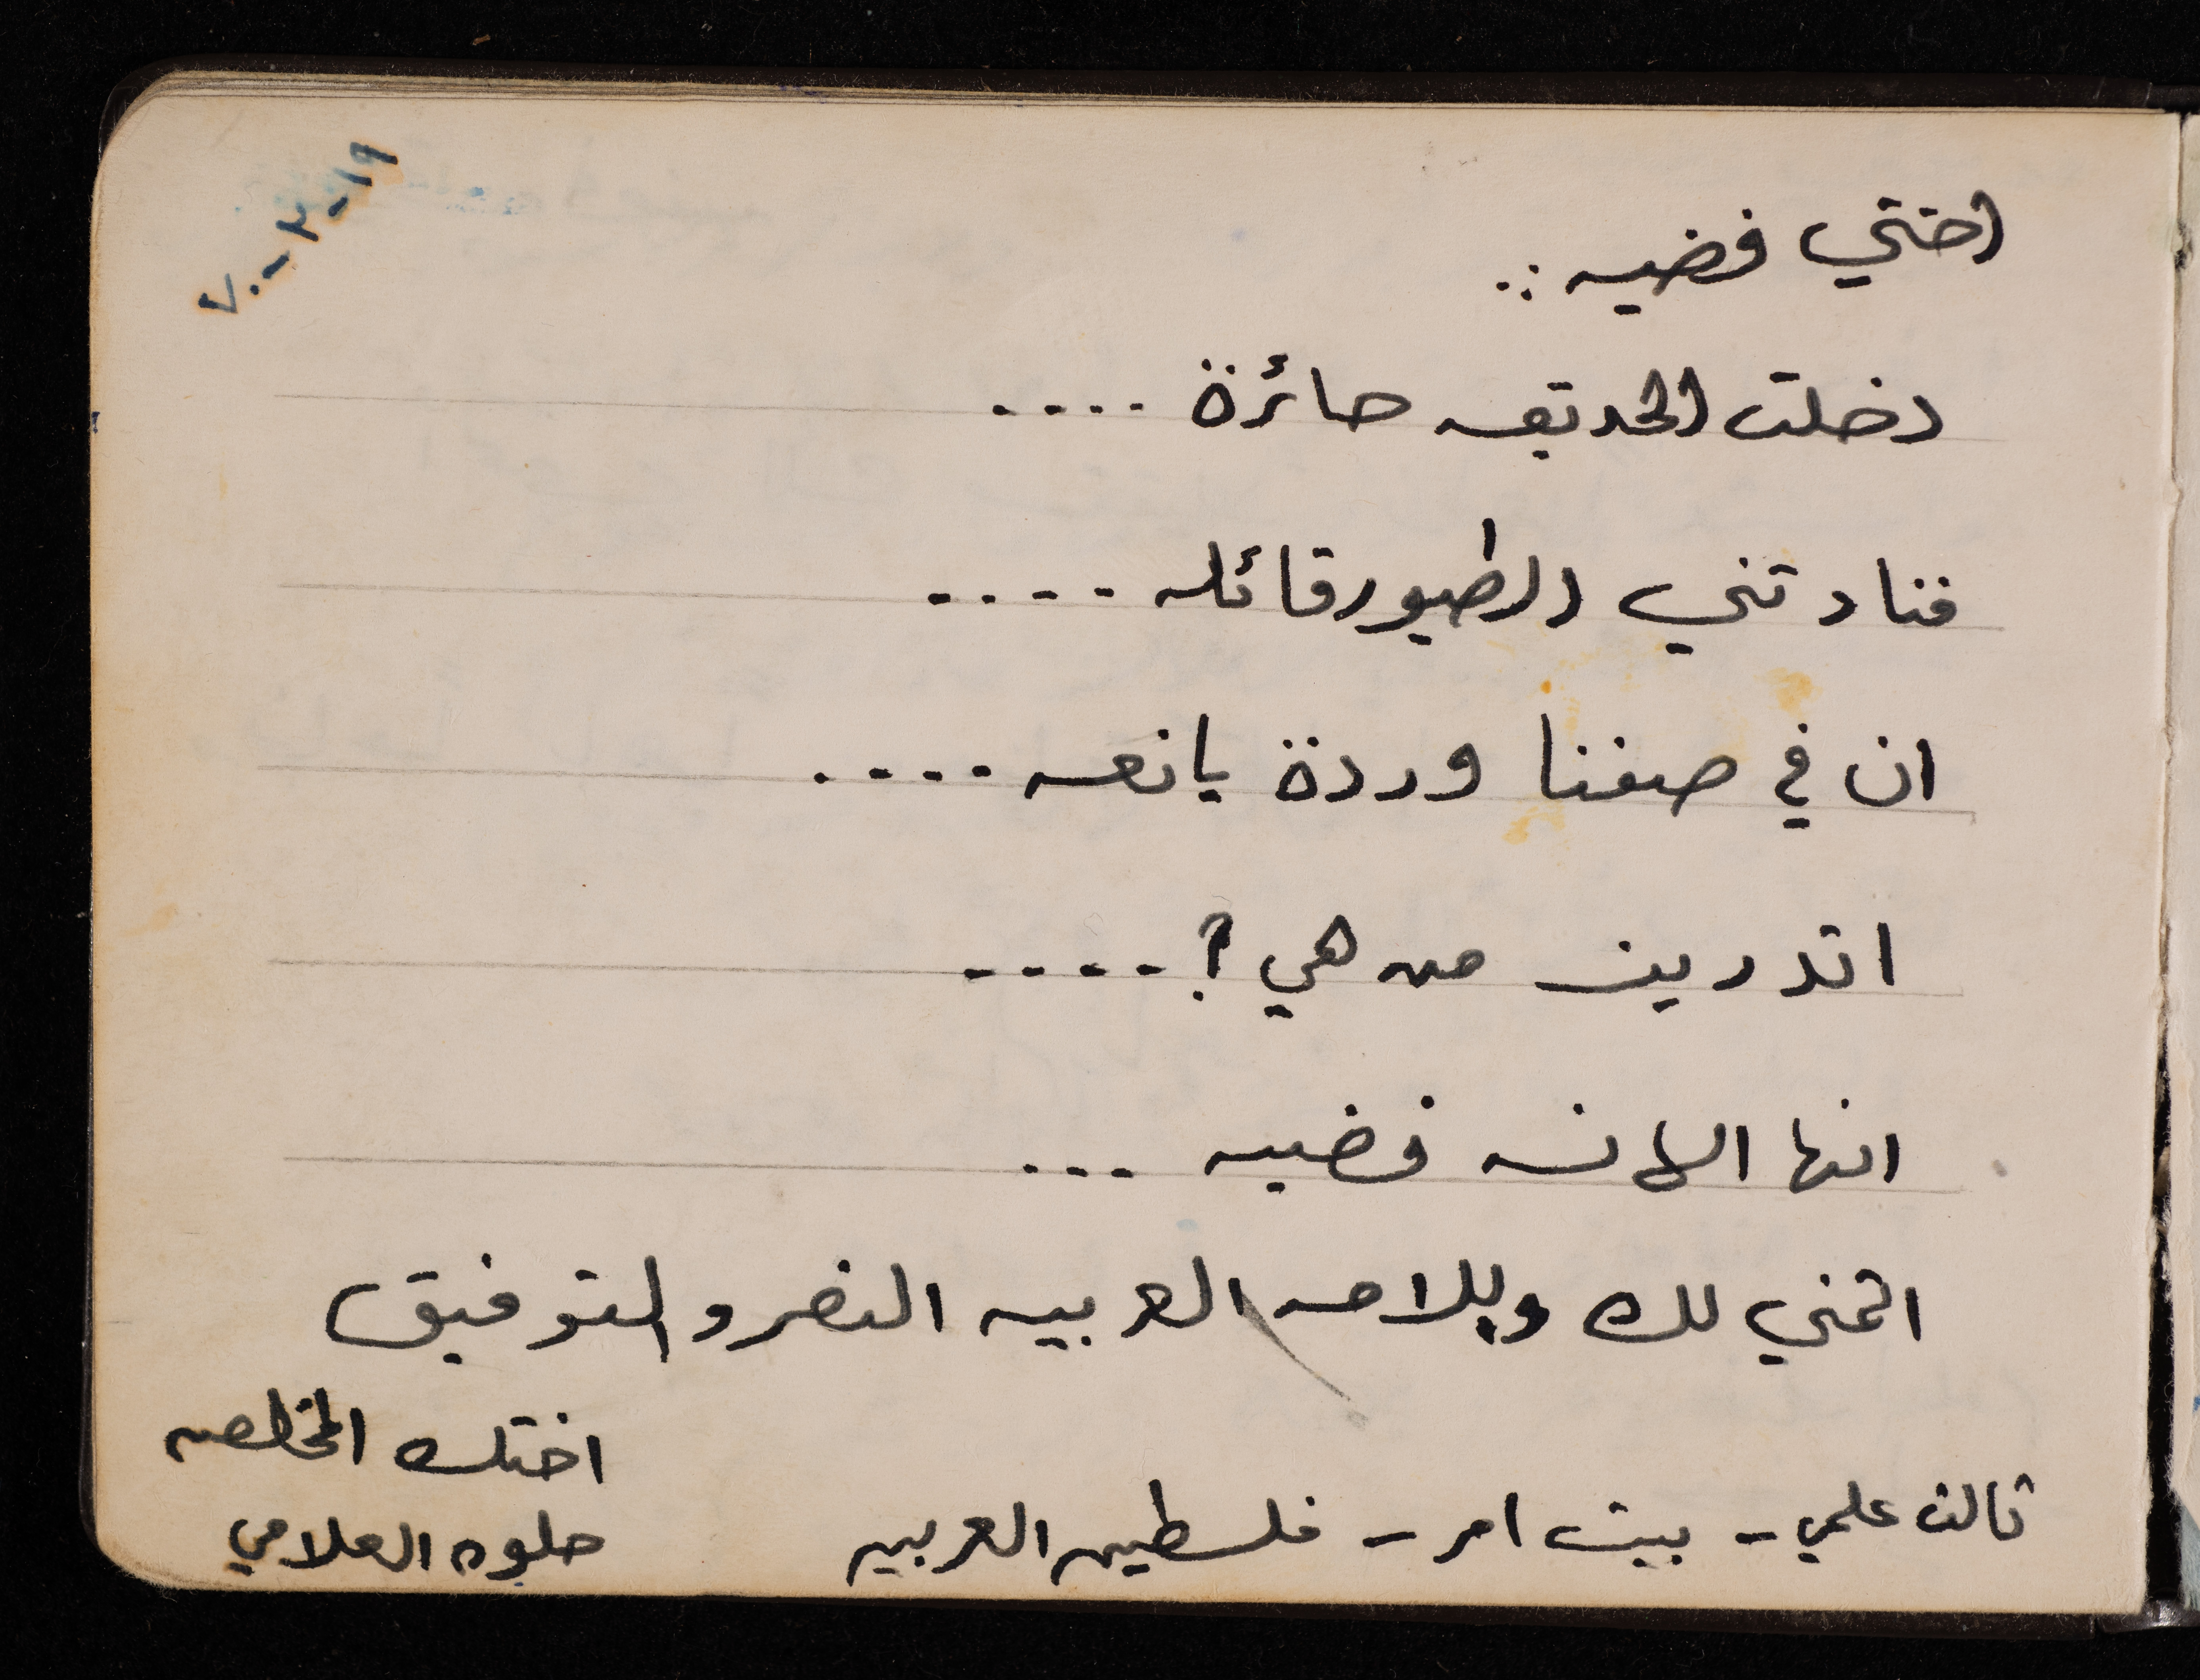 ١٩-٣-٧٠
اختي فضيه :.
دخلت الحديقه حائرة ....
فنادتني الطيور قائله ....
ان في صفنا وردة يانعه ....
اتدرين من هي ؟ ....
انها الانسه فضيه ...
اتمنى لك وللامه العربيه النصر والتوفيق
اختك المخلصه
حلوه العلامي
ثالث علمي - بيت امر - فلسطين العربيه